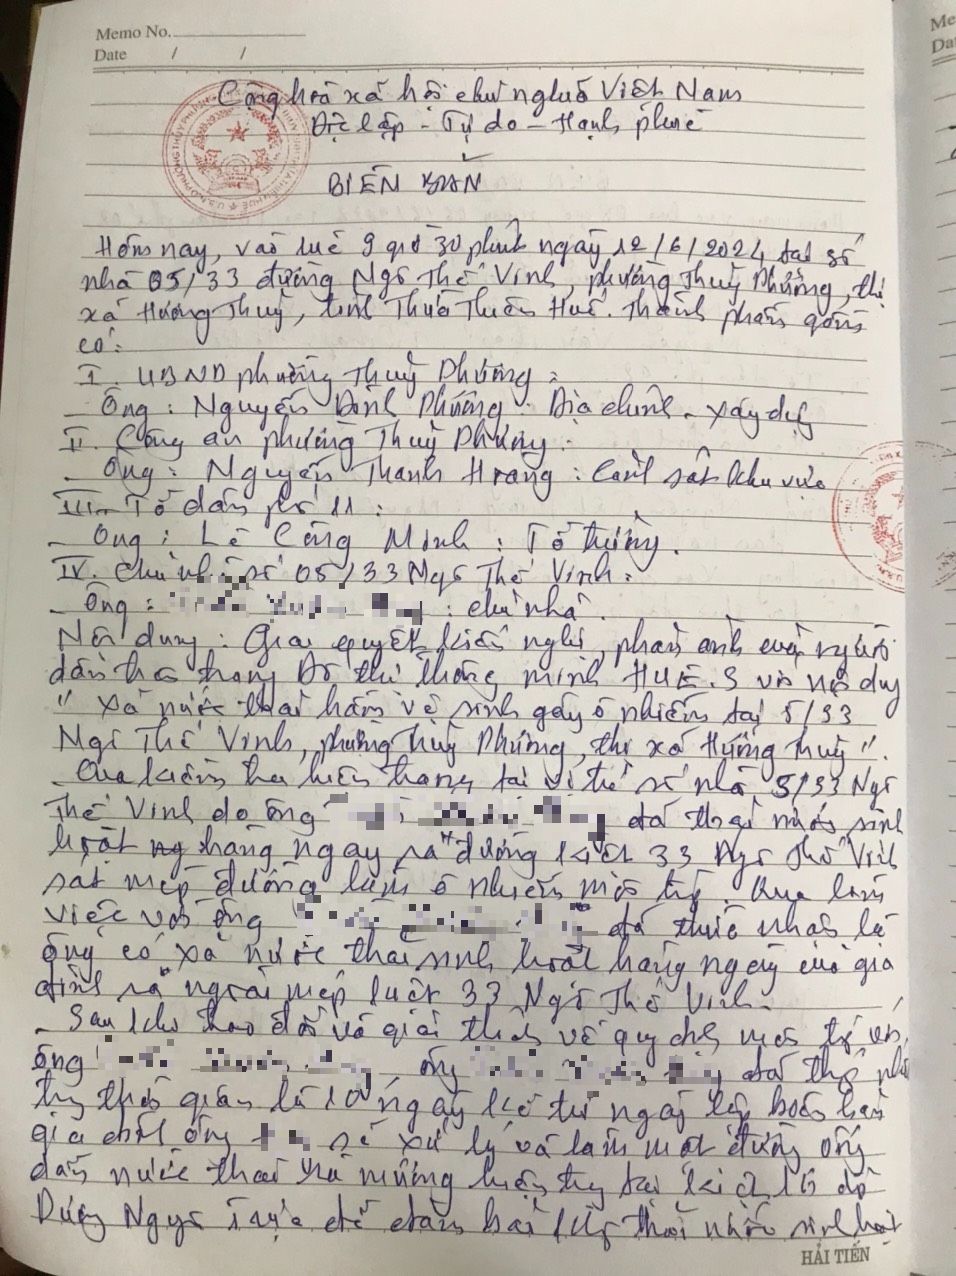 Memo No.
Date / /
Cộng hoà xã hội chủ nghĩa Việt Nam
Độc lập - Tự do - Hạnh phúc
BIÊN BẢN
Hôm nay, vào lúc 9 giờ 30 phút ngày 12/6/2024 tại số
nhà 05/33 đường Ngô Thế Vinh, phường Thuỷ Phương, thị
xã Hương Thuỷ, tỉnh Thừa Thiên Huế. Thành phần gồm
có:
I. UBND phường Thuỷ Phương:
Ông: Nguyễn Đình Phương: Địa chính - xây dựng
II. Công an phường Thuỷ Phương:
- Ông: Nguyễn Thanh Hoàng: Cảnh sát khu vực
III. Tổ dân phố 11:
- Ông: Lê Công Minh: Tổ trưởng.
IV. Chủ nhà số 05/33 Ngô Thế Vinh:
- Ông: : chủ nhà.
Nội dung: Giải quyết kiến nghị, phản ánh của người
dân theo trang Đô thị thông minh HUẾ.S với nội dung
" Xả nước thải hầm vệ sinh gây ô nhiễm tại 5/33
Ngô Thế Vinh, phường Thuỷ Phương, thị xã Hương Thuỷ".
- Qua kiểm tra hiện trạng tại vị trí số nhà 5/33 Ngô
Thế Vinh do ông đã thải nước sinh
hoạt hàng ngày ra đường kiệt 33 Ngô Thế Vinh
sát mép đường làm ô nhiễm môi trường. Qua làm
việc với ông đã thừa nhận là
ông có xả nước thải sinh hoạt hàng ngày của gia
đình ra ngoài mép kiệt 33 Ngô Thế Vinh.
- Sau khi trao đổi và giải thích về quy chế môi trường
ông ông đã thống nhất
thời gian là 10 ngày kể từ ngày lập biên bản
gia đình ông sẽ xử lý và làm một đường ống
dẫn nước thải ra mương hiện trạng tại kiệt 16 đường
Dương Ngục để đảm bảo thoát nước sinh hoạt
HẢI TIẾN
Me
Da